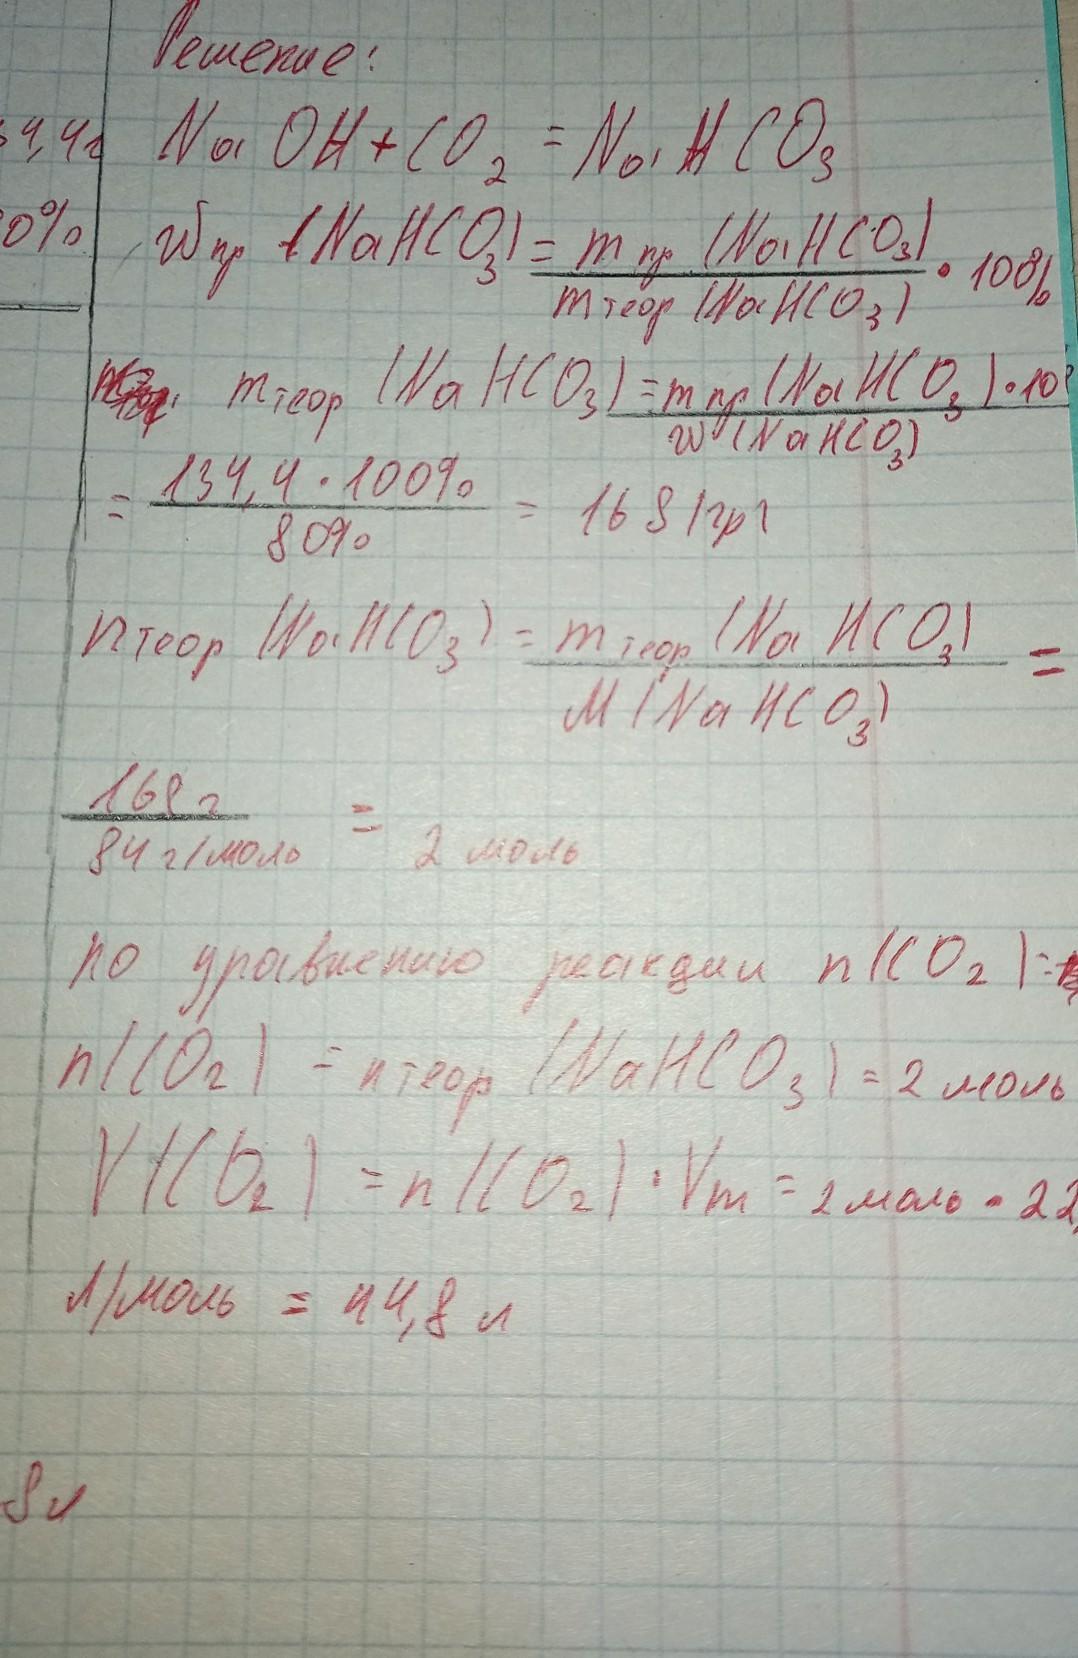 Решение:
4,4г
NaOH + CO₂ = NaHCO₃
0%
Wпр (NaHCO₃) = mпр (NaHCO₃) / mтеор (NaHCO₃) · 100%
mтеор (NaHCO₃) = mпр (NaHCO₃) · 10 / W (NaHCO₃)
= 134,4 · 100% / 80% = 168 (гр)
nтеор (NaHCO₃) = mтеор (NaHCO₃) / M (NaHCO₃) =
168 г / 84 г/моль = 2 моль
по уравнению реакции n(CO₂) =
n(CO₂) = nтеор (NaHCO₃) = 2 моль
V(CO₂) = n(CO₂) · Vm = 2 моль · 22,
л/моль = 44,8 л
8 л